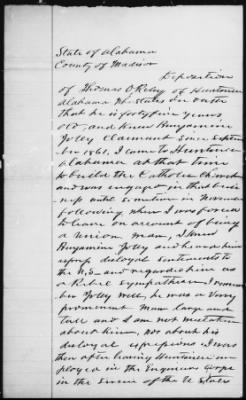 State of Alabama
County of Madison
Deposition
of Thomas O'Reley of Huntsville
Alabama Who States on oath
that he is forty five years
old, and knew Benjamine
Jolley claimant since Septem
ber 1860, I came to Huntsville
Alabama at that time
to build the Catholic Church
and was engaged in that busi-
ness until sometime in November
following when I was forced
to leave on account of being
a Union man, I knew
Benjamine Jolley and heard him
express disloyal sentiments to
the U,S— and regarded him as
a Rebel sympathiser I remem
ber Jolley well, he was a very
prominent man large and
tall and I am not mistaken
about him, nor about his
disloyal expressions I was
then after leaving Huntsville em-
ployed in the Engineer Corps
in the service of the U States